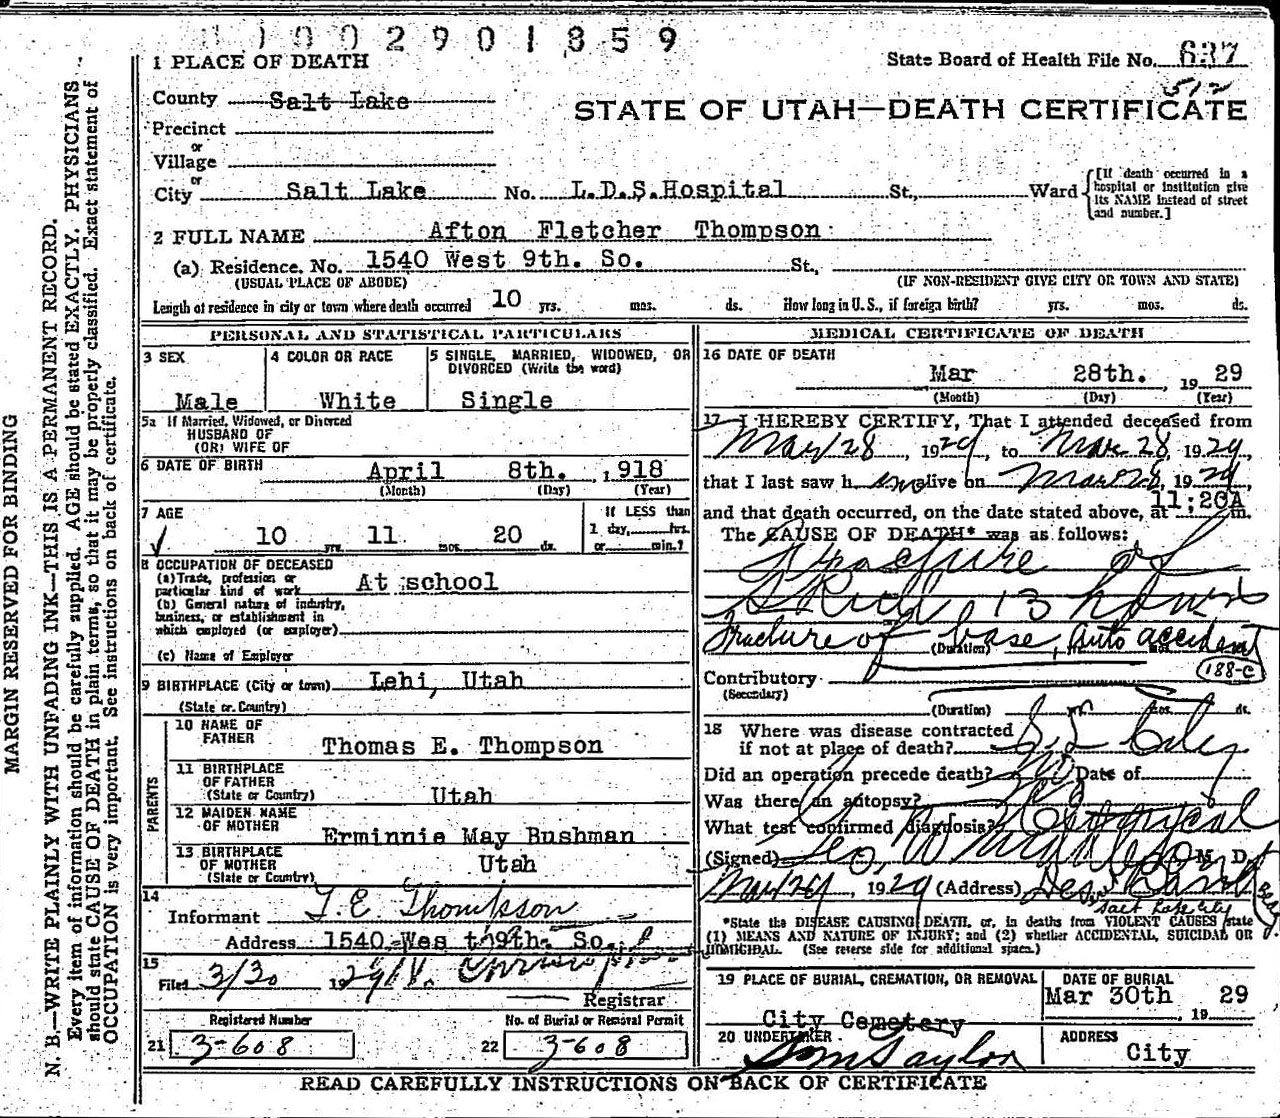 1002901859
1 PLACE OF DEATH
State Board of Health File No. 637
512
County Salt Lake
STATE OF UTAH—DEATH CERTIFICATE
Precinct
or
Village
or
City Salt Lake No. L.D.S.Hospital St., Ward
[If death occurred in a hospital or institution give its NAME instead of street and number.]
2 FULL NAME Afton Fletcher Thompson
(a) Residence. No. 1540 West 9th. So. St.,
(USUAL PLACE OF ABODE) (IF NON-RESIDENT GIVE CITY OR TOWN AND STATE)
Length of residence in city or town where death occurred 10 yrs. mos. ds. How long in U.S., if foreign birth? yrs. mos. ds.
PERSONAL AND STATISTICAL PARTICULARS
3 SEX
Male
4 COLOR OR RACE
White
5 SINGLE, MARRIED, WIDOWED, OR
DIVORCED (Write the word)
Single
5a If Married, Widowed, or Divorced
HUSBAND OF
(OR) WIFE OF
6 DATE OF BIRTH April 8th. ,1918
(Month) (Day) (Year)
7 AGE
10 yrs. 11 mos. 20 ds.
If LESS than
1 day, hrs.
or min.?
8 OCCUPATION OF DECEASED
(a) Trade, profession or
particular kind of work At school
(b) General nature of industry,
business, or establishment in
which employed (or employer)
(c) Name of Employer
9 BIRTHPLACE (City or town) Lehi, Utah
(State or Country)
PARENTS
10 NAME OF
FATHER Thomas E. Thompson
11 BIRTHPLACE
OF FATHER
(State or Country) Utah
12 MAIDEN NAME
OF MOTHER Erminnie May Bushman
13 BIRTHPLACE
OF MOTHER Utah
(State or Country)
14
Informant T. E Thompson
Address 1540 West 9th. So.
15
Filed 3/30 1929
Registrar
Registered Number
21 3-608
No. of Burial or Removal Permit
22 3-608
MEDICAL CERTIFICATE OF DEATH
16 DATE OF DEATH
Mar 28th. , 1929
(Month) (Day) (Year)
17 I HEREBY CERTIFY, That I attended deceased from
Mar 28, 1929, to Mar 28, 1929
that I last saw him alive on Mar 28, 1929,
and that death occurred, on the date stated above, at 11:20A m.
The CAUSE OF DEATH* was as follows:
Fracture of
Skull 13 hours
Fracture of base, Auto accident
(Duration) mos.
188-c
Contributory
(Secondary)
(Duration) yrs. mos. ds.
18 Where was disease contracted
if not at place of death? S. L. City
Did an operation precede death? No Date of
Was there an autopsy? No
What test confirmed diagnosis? Clinical
(Signed) Geo W Middleton M. D.
1929 (Address)
Salt Lake City
*State the DISEASE CAUSING DEATH, or, in deaths from VIOLENT CAUSES state
(1) MEANS AND NATURE OF INJURY; and (2) whether ACCIDENTAL, SUICIDAL OR
HOMICIDAL. (See reverse side for additional space.)
19 PLACE OF BURIAL, CREMATION, OR REMOVAL
City Cemetery
DATE OF BURIAL
Mar 30th , 1929
20 UNDERTAKER
Taylor
ADDRESS
City
READ CAREFULLY INSTRUCTIONS ON BACK OF CERTIFICATE
MARGIN RESERVED FOR BINDING
N. B.—WRITE PLAINLY WITH UNFADING INK—THIS IS A PERMANENT RECORD.
Every item of information should be carefully supplied. AGE should be stated EXACTLY. PHYSICIANS
should state CAUSE OF DEATH in plain terms, so that it may be properly classified. Exact statement of
OCCUPATION is very important. See instructions on back of certificate.